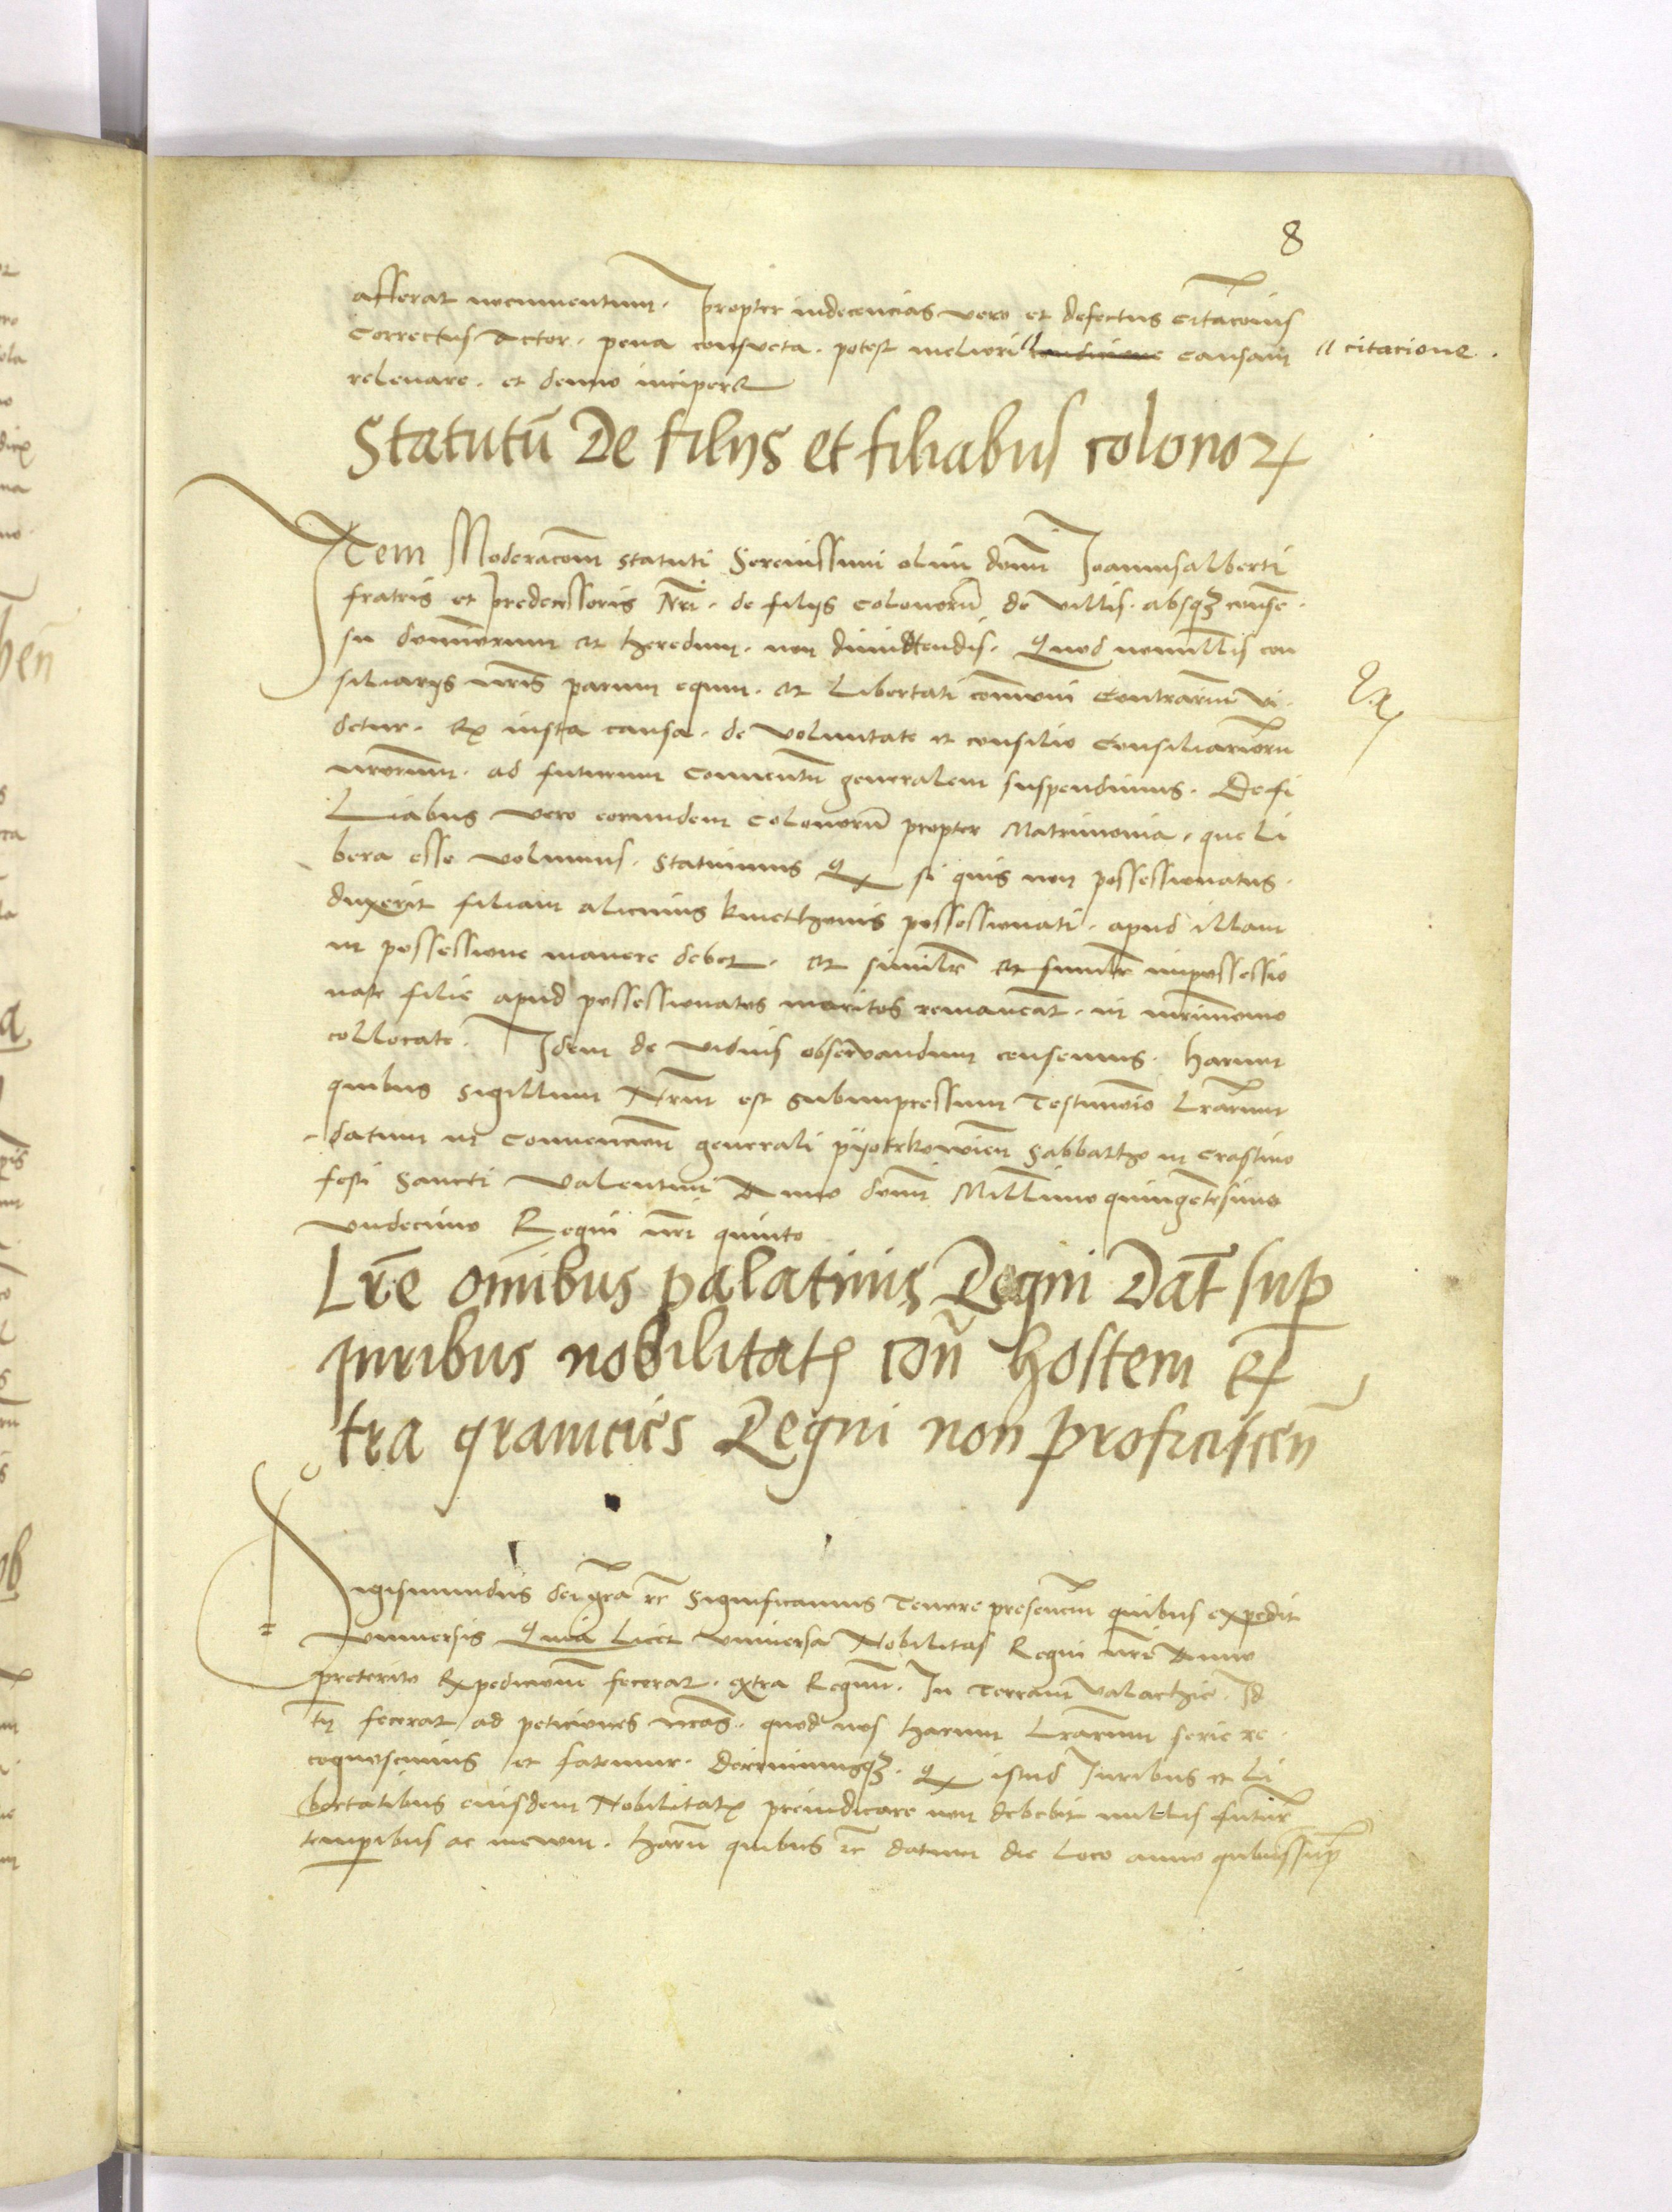 8
afferat nocumentum. Propter indecencias vero et defectus citacõnis
Correctus Actor. pena consveta. potest meliori condicione causam
citacione.
relevare. et denuo incipere
Statutũ De filijs et filiabus colonoꝝ
Item Moderacõem statuti Serenissimi olim domĩ Joannisalberti
fratris et predecessoris Nrĩ. de filijs colonorũ de villis. absqꝫ consen
su dominorum et heredum. non dimittendis. Quod nonnullis con
siliarijs nrĩs parum equm. et Libertati cõmuni Contrarium vi
detur. Ex iusta causa. de voluntate et consilio Consiliariorũ
nrorum. ad futurum Conventũ generalem suspendimus. De fi
Liabus vero eorundem Colonorũ propter Matrimonia. que li
bera esse volumus. Statuimus Qꝫ si quis non possessionatus.
duxerit filiam alicuius kmethonis possessionati. apud illam
in possessione manere debet. et similr̃ et similr̃ impossessio
nate filie apud possessionatos maritos remaneãt. in mr̃imonio
collocate. Idem de viduis observandum censemus. Harum
quibus sigillum Nrũm est subimpressum Testimonio Lrãrum
datum in Convencione generali pijotrkowień Sabbatho in Crastino
festi Sancti Valentini Anno domĩ Millimo quingentesimo
vndecimo Regni nrĩ quinto
Lrẽ omibus palatinis Regni Dat̃ suꝑ
iuribus nobilitatꝭ con̄ hostem Ex
tra granicies Regni non proficiscen̄
Sigismundus dei grã rc̃ Significamus Tenore presencium quibus expedit
Vniversis Quia Licet vniversa Nobilitas Regni nrĩ Anno
preterito Expedicionem fecerat. extra Regnum. In Terram Valachie. Id
tñ fecerat ad peticiones nrãs. quod nos harum Lrãrum serie re
cognoscimus et fatemur. decernimusqꝫ. Qꝫ istud Iuribus et Li
bertatibus eiusdem Nobilitatꝭ preiudicare non debebit nullis futurꝭ
temꝑibus ac in evum. harũ quibus rc̃ datum die Loco anno quibus suꝑ